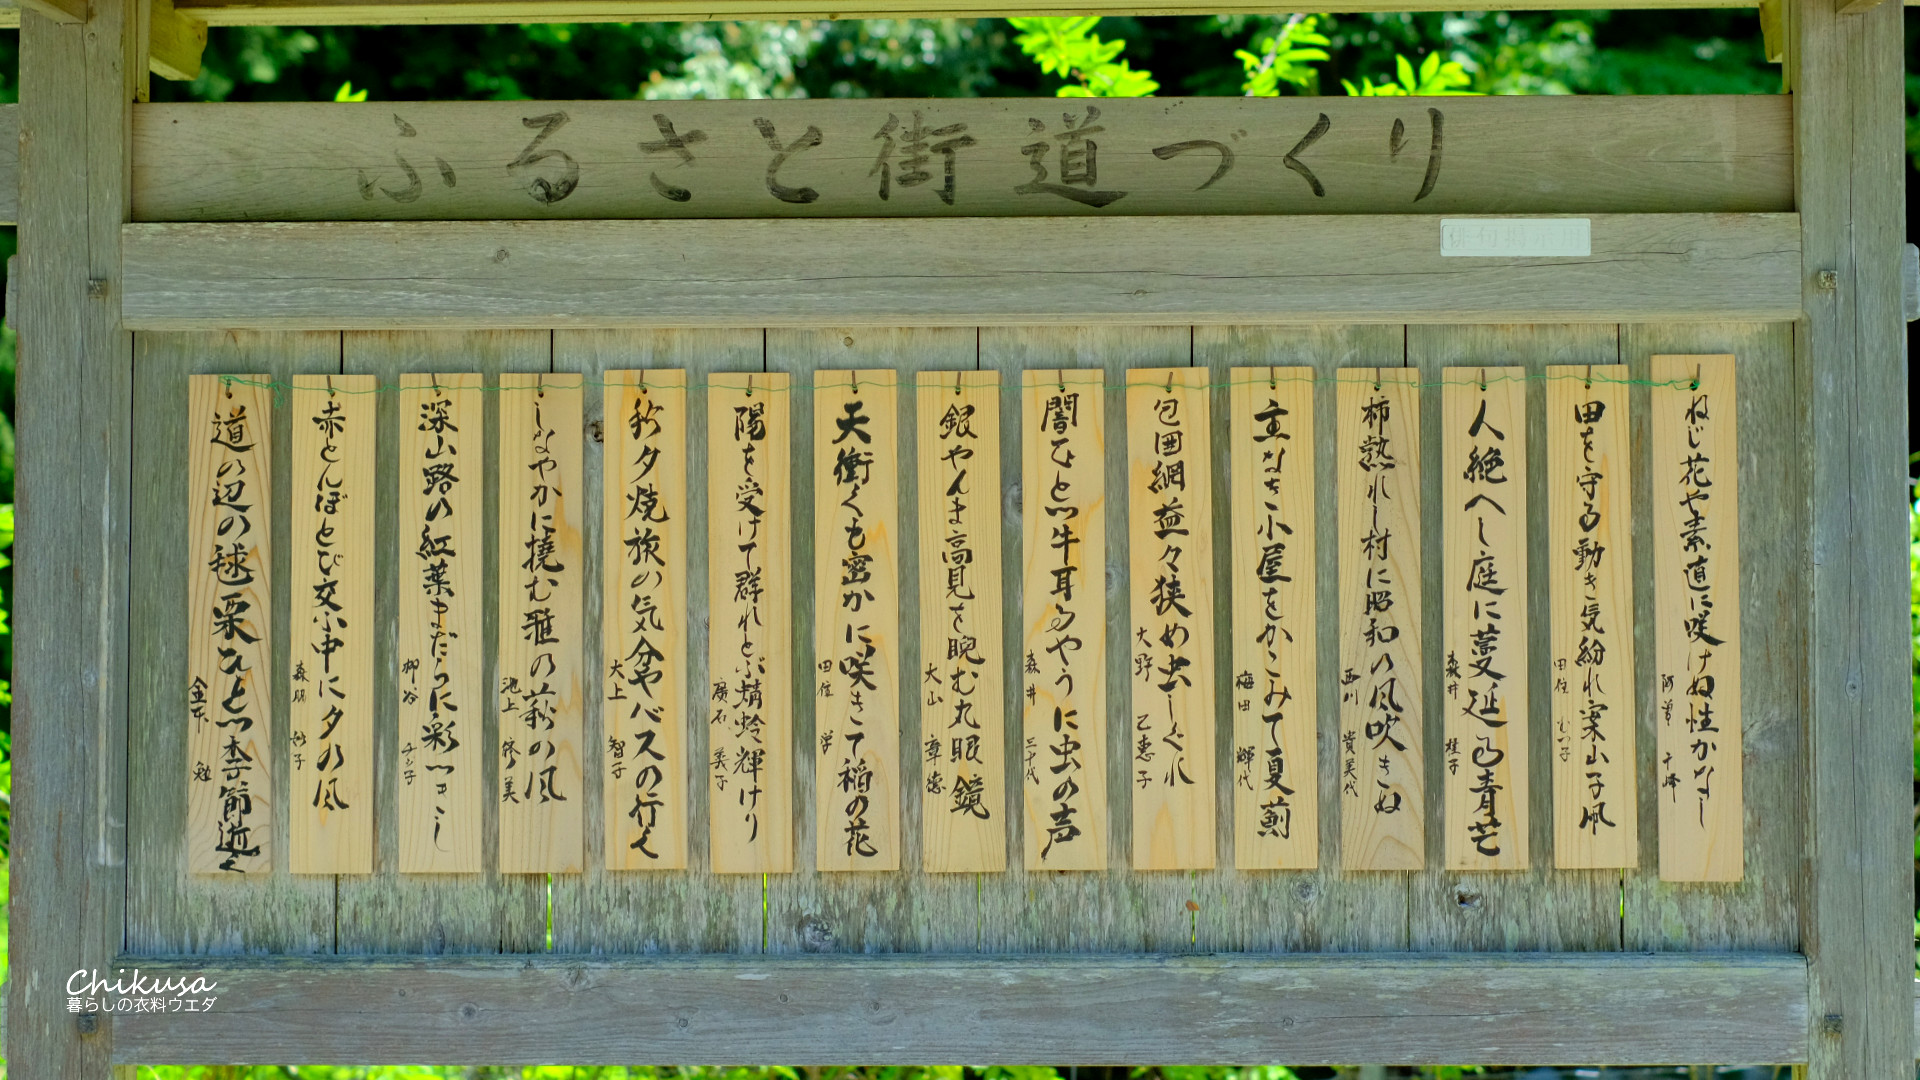 ふるさと街道づくり
ねじ花や素直に咲けぬ性かなし
千峰
田を守る動き気紛れ案山子凧
田住 むつ子
人絶へし庭に蔓延る青芒
森井 桂子
柿熟れし村に昭和の風吹きぬ
西川 貴美代
主なき小屋をかこみて夏薊
梅田 輝代
包囲網益々狭め虫しぐれ
大野 乙恵子
闇ひとつ牛耳るやうに虫の声
森井 三十代
銀やんま高見を睨む丸眼鏡
大山 章徳
天衝くも密かに咲きて稲の花
田住 学
陽を受けて群れとぶ蜻蛉輝けり
廣石 美子
秋夕焼旅の気分やバスの行く
大上 智子
しなやかに撓む雅の萩の風
池上 美
深山路の紅葉まだらに彩つきし
柳谷 子
赤とんぼとび交ふ中に夕の風
森脇 妙子
道の辺の毬栗ひとつ季節逝く
金本 勉
Chikusa
暮らしの衣料ウエダ